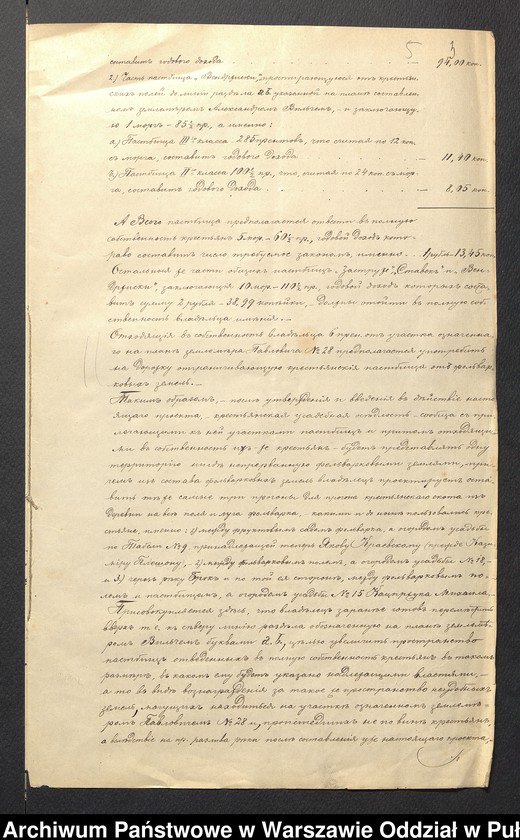 5 3
составитъ годового дохода . . . . 94,00 коп.
2) Часть пастбища простирающуюся отъ крестьян-
скихъ полей до линіи раздѣла а.б. указанной на планѣ составлен-
номъ землемѣромъ Александромъ Вильчек, - и заключающу-
ю 1 морг - 85½ пр., а именно:
а) Пастбища III класса 285 прентовъ, что считая по 12 коп.
съ морга, составитъ годового дохода — 11,40 коп.
б) Пастбища II класса 100½ пр., что считая по 24 коп. съ мор-
га, составитъ годового дохода — 8,05 коп.
А всего пастбища предполагается отвести въ полную
собственность крестьянъ 5 мор. - 60½ пр., годовой доходъ кото-
раго составитъ число требуемое закономъ, именно: 1 рубль 13,45 коп.
Остальныя же части общихъ пастбищъ, „Ставекъ“ и
заключающія 10 мор. - 110½ пр., годовой доходъ которыхъ соста-
витъ сумму 2 рубля - 38,99 копѣйки, должны отойти въ полную соб-
ственность владѣльца имѣнія. —
Отходящія въ собственность владѣльца 6 прен. отъ участка означенна-
го на планѣ землемѣра Павловича № 28 предполагается употребить
на дорожку отграничивающую крестьянскія пастбища отъ фольвар-
ковыхъ земель. —
Такимъ образомъ, - послѣ утвержденія и введенія въ дѣйствіе насто-
ящаго проекта, - крестьянская усадебная осѣдлость - сообща съ при-
легающими къ ней участками пастбищъ и притомъ отходящи-
ми въ собственность ихъ-же крестьянъ - будетъ представлять одну
территорію нигдѣ непрерванную фольварковыми землями, при-
чемъ изъ состава фольварковыхъ земель владѣлецъ проектируетъ оста-
вить тѣ же самые три прогоны для прогона крестьянскаго скота изъ
деревни на всѣ поля и луга фольварка, - какими и до нынѣ пользовались кре-
стьяне, именно: 1) между фруктовымъ садомъ фольварка, и огородомъ усадьбы
по Табели № 9, принадлежащей теперь Якову Краевскому (прежде Кази-
міру Плешону), - 2) между фольварковымъ полемъ, а огородомъ усадьбы № 18, -
и 3) черезъ рѣку Брокъ и по той её сторонѣ, между фольварковымъ по-
лемъ и пастбищемъ, а огородомъ усадьбы № 15 Кацпржука Михаила.
Присовокупляется здѣсь, что владѣлецъ заранѣе готовъ перемѣстить
вверхъ т.е. къ сѣверу линію раздѣла обозначенную на планѣ землемѣ-
ромъ Вильчекомъ буквами а.б., съ цѣлью увеличить пространство
пастбищъ отведенныхъ въ полную собственность крестьянъ въ такомъ
размѣрѣ, въ какомъ ему будетъ указано надлежащими властями, -
а то въ видѣ вознагражденія за такое же пространство неудобныхъ
земель, могущихъ находиться на участкѣ означенномъ землемѣ-
ромъ Павловичемъ № 28 и, происшедшихъ не по винѣ крестьянъ,
а вслѣдствіе на пр. разлива рѣки послѣ составленія уже настоящаго проекта. -
Archiwum Państwowe w Warszawie Oddział w Puł